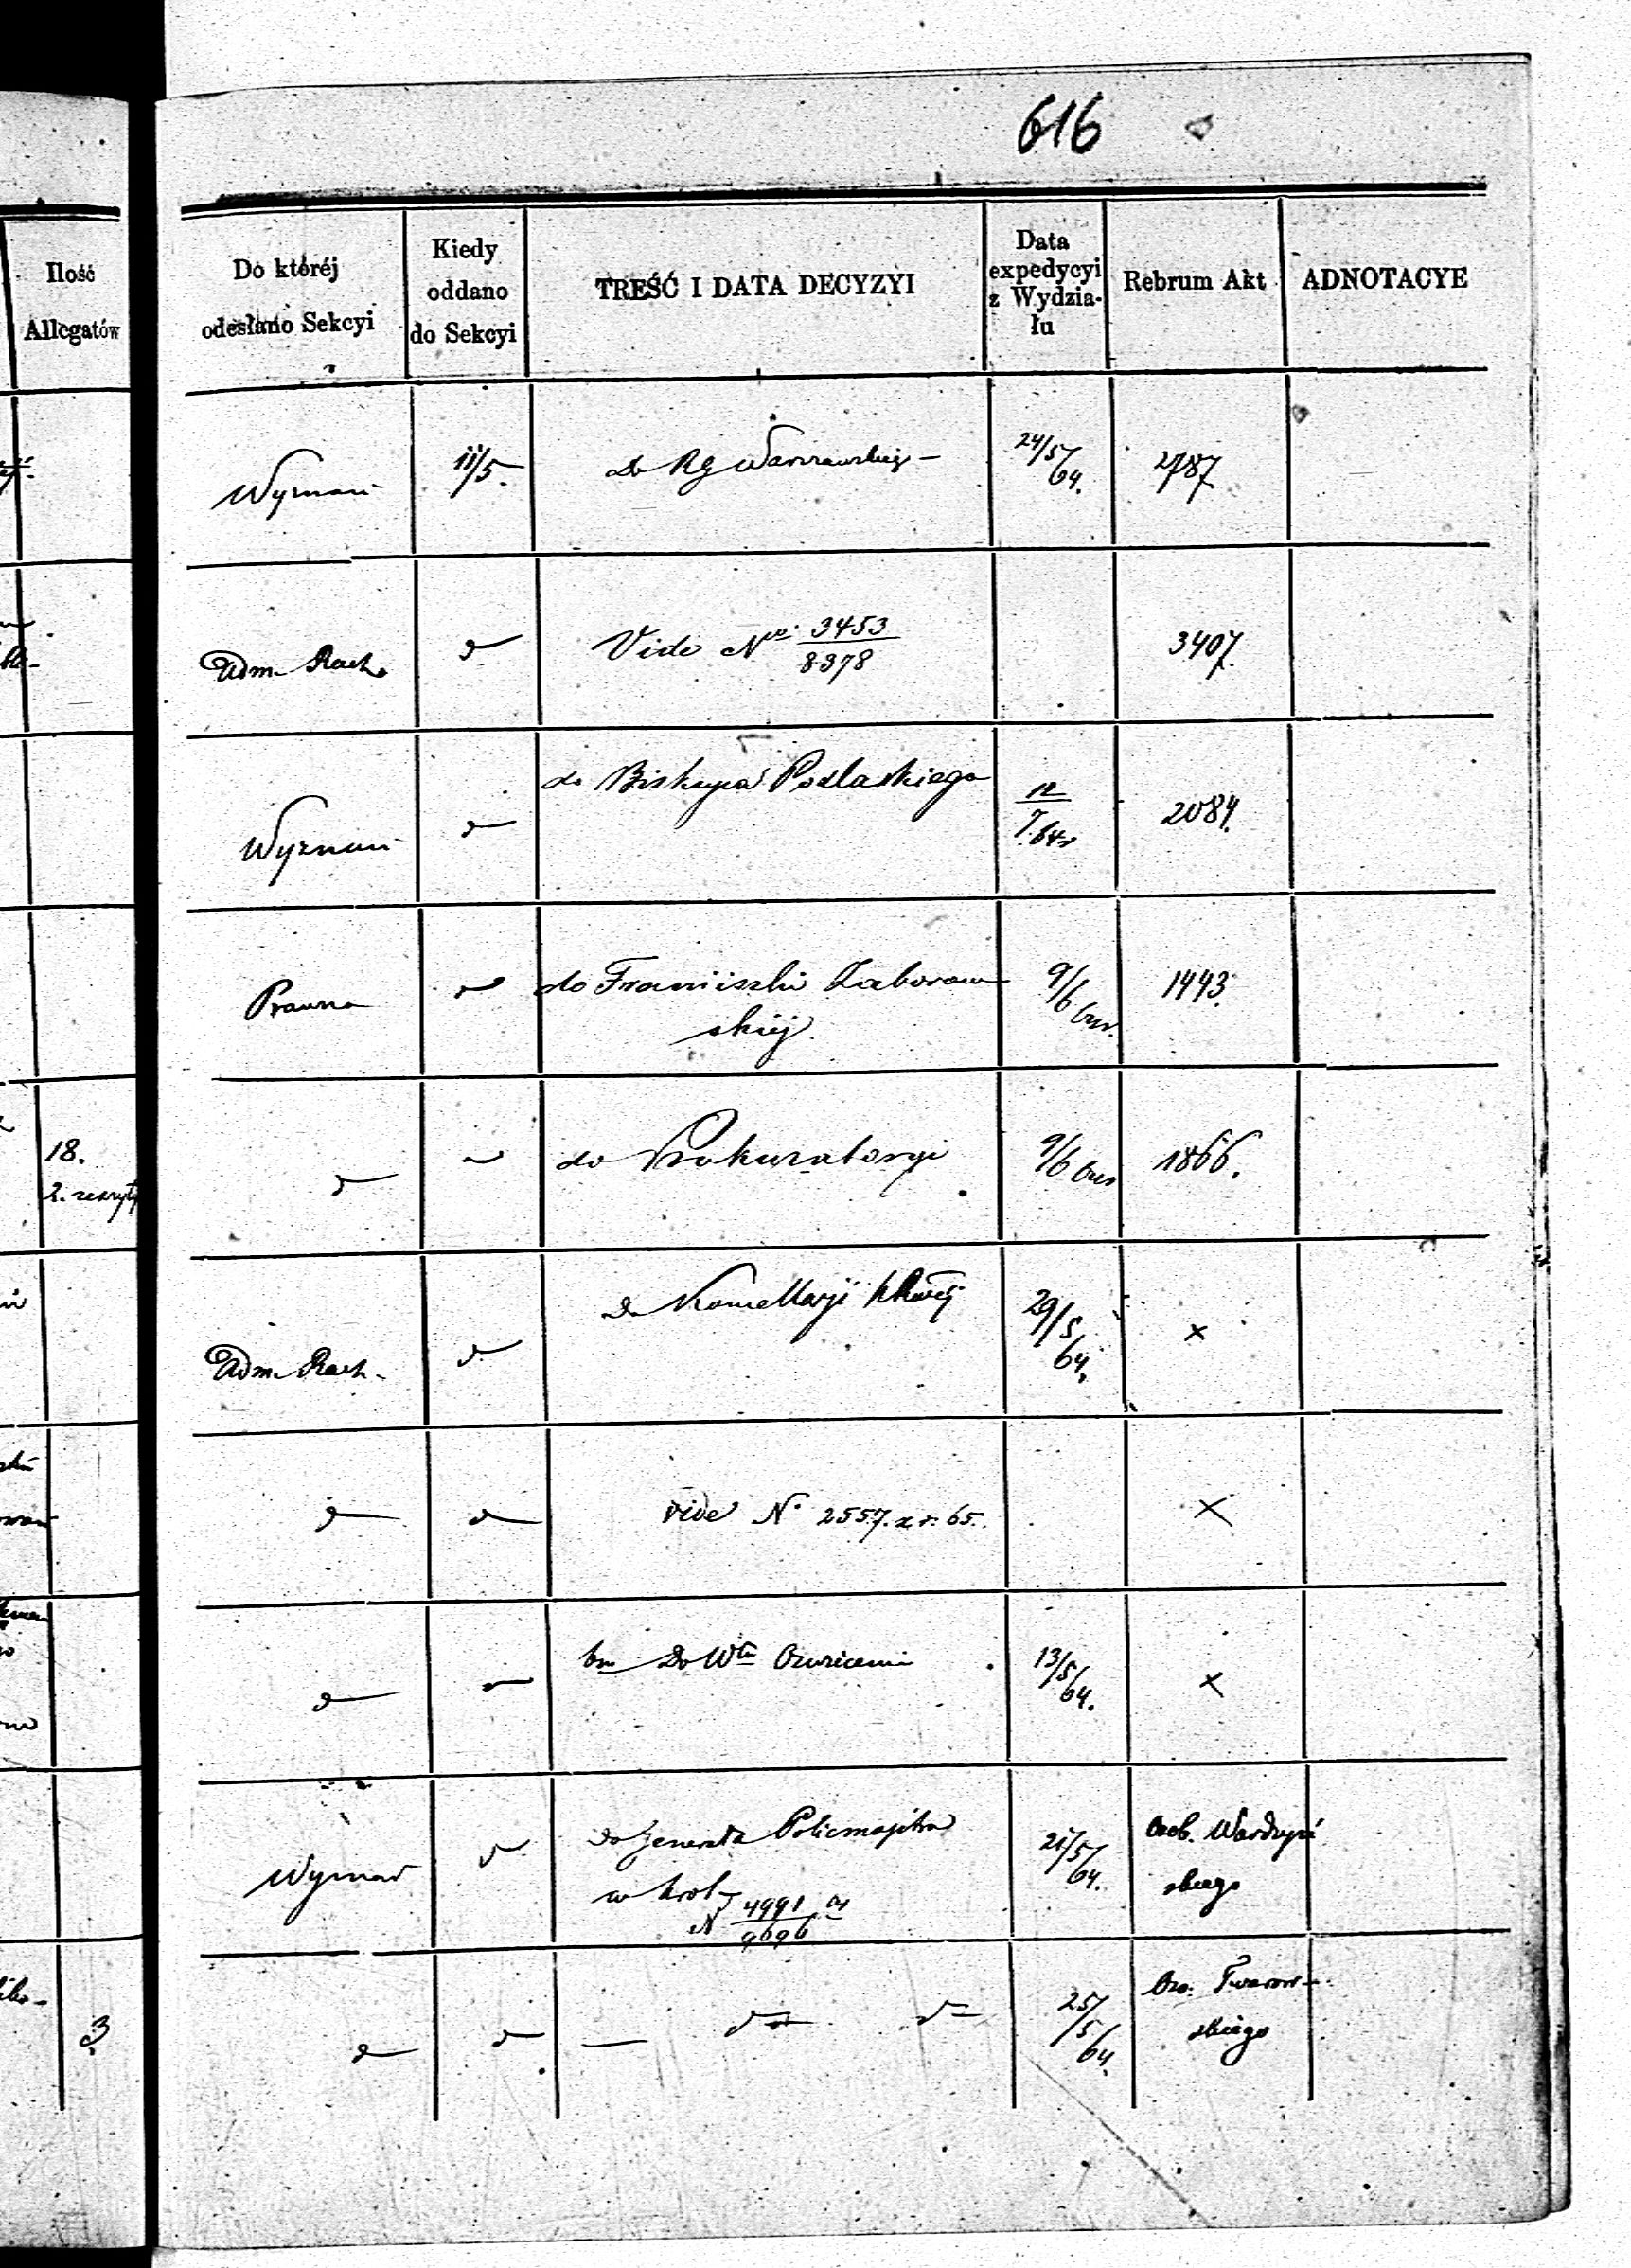 616
Ilość
Allegatów
Do któréj
odesłano Sekcyi
Kiedy
oddano
do Sekcyi
TREŚĆ I DATA DECYZYI
Data
expedycyi
z Wydzia-
łu
Rebrum Akt
ADNOTACYE
Wyznań 11/5. do RG Warszawskiej – 24/5 64. 2787
Adm. Rach. Vide No. 3453/8378 3407.
Wyznań do Biskupa Podlaskiego 12/7.64 2084.
Prawna do Franciszki Zaborow
skiej 9/6 1993.
18.
2. zeszyty
do Prokuratoryi 9/6 1866.
Adm. Rach. 29/5 64. ×
vide N. 2557. z r. 65. ×
Do 13/5 64. ×
Wyznań do Jenerała Policmajstra 21/5 64. Osob. Wardzyń
w Król skiego
N 4991/9696
3
25/5 64 Twarow-
skiego